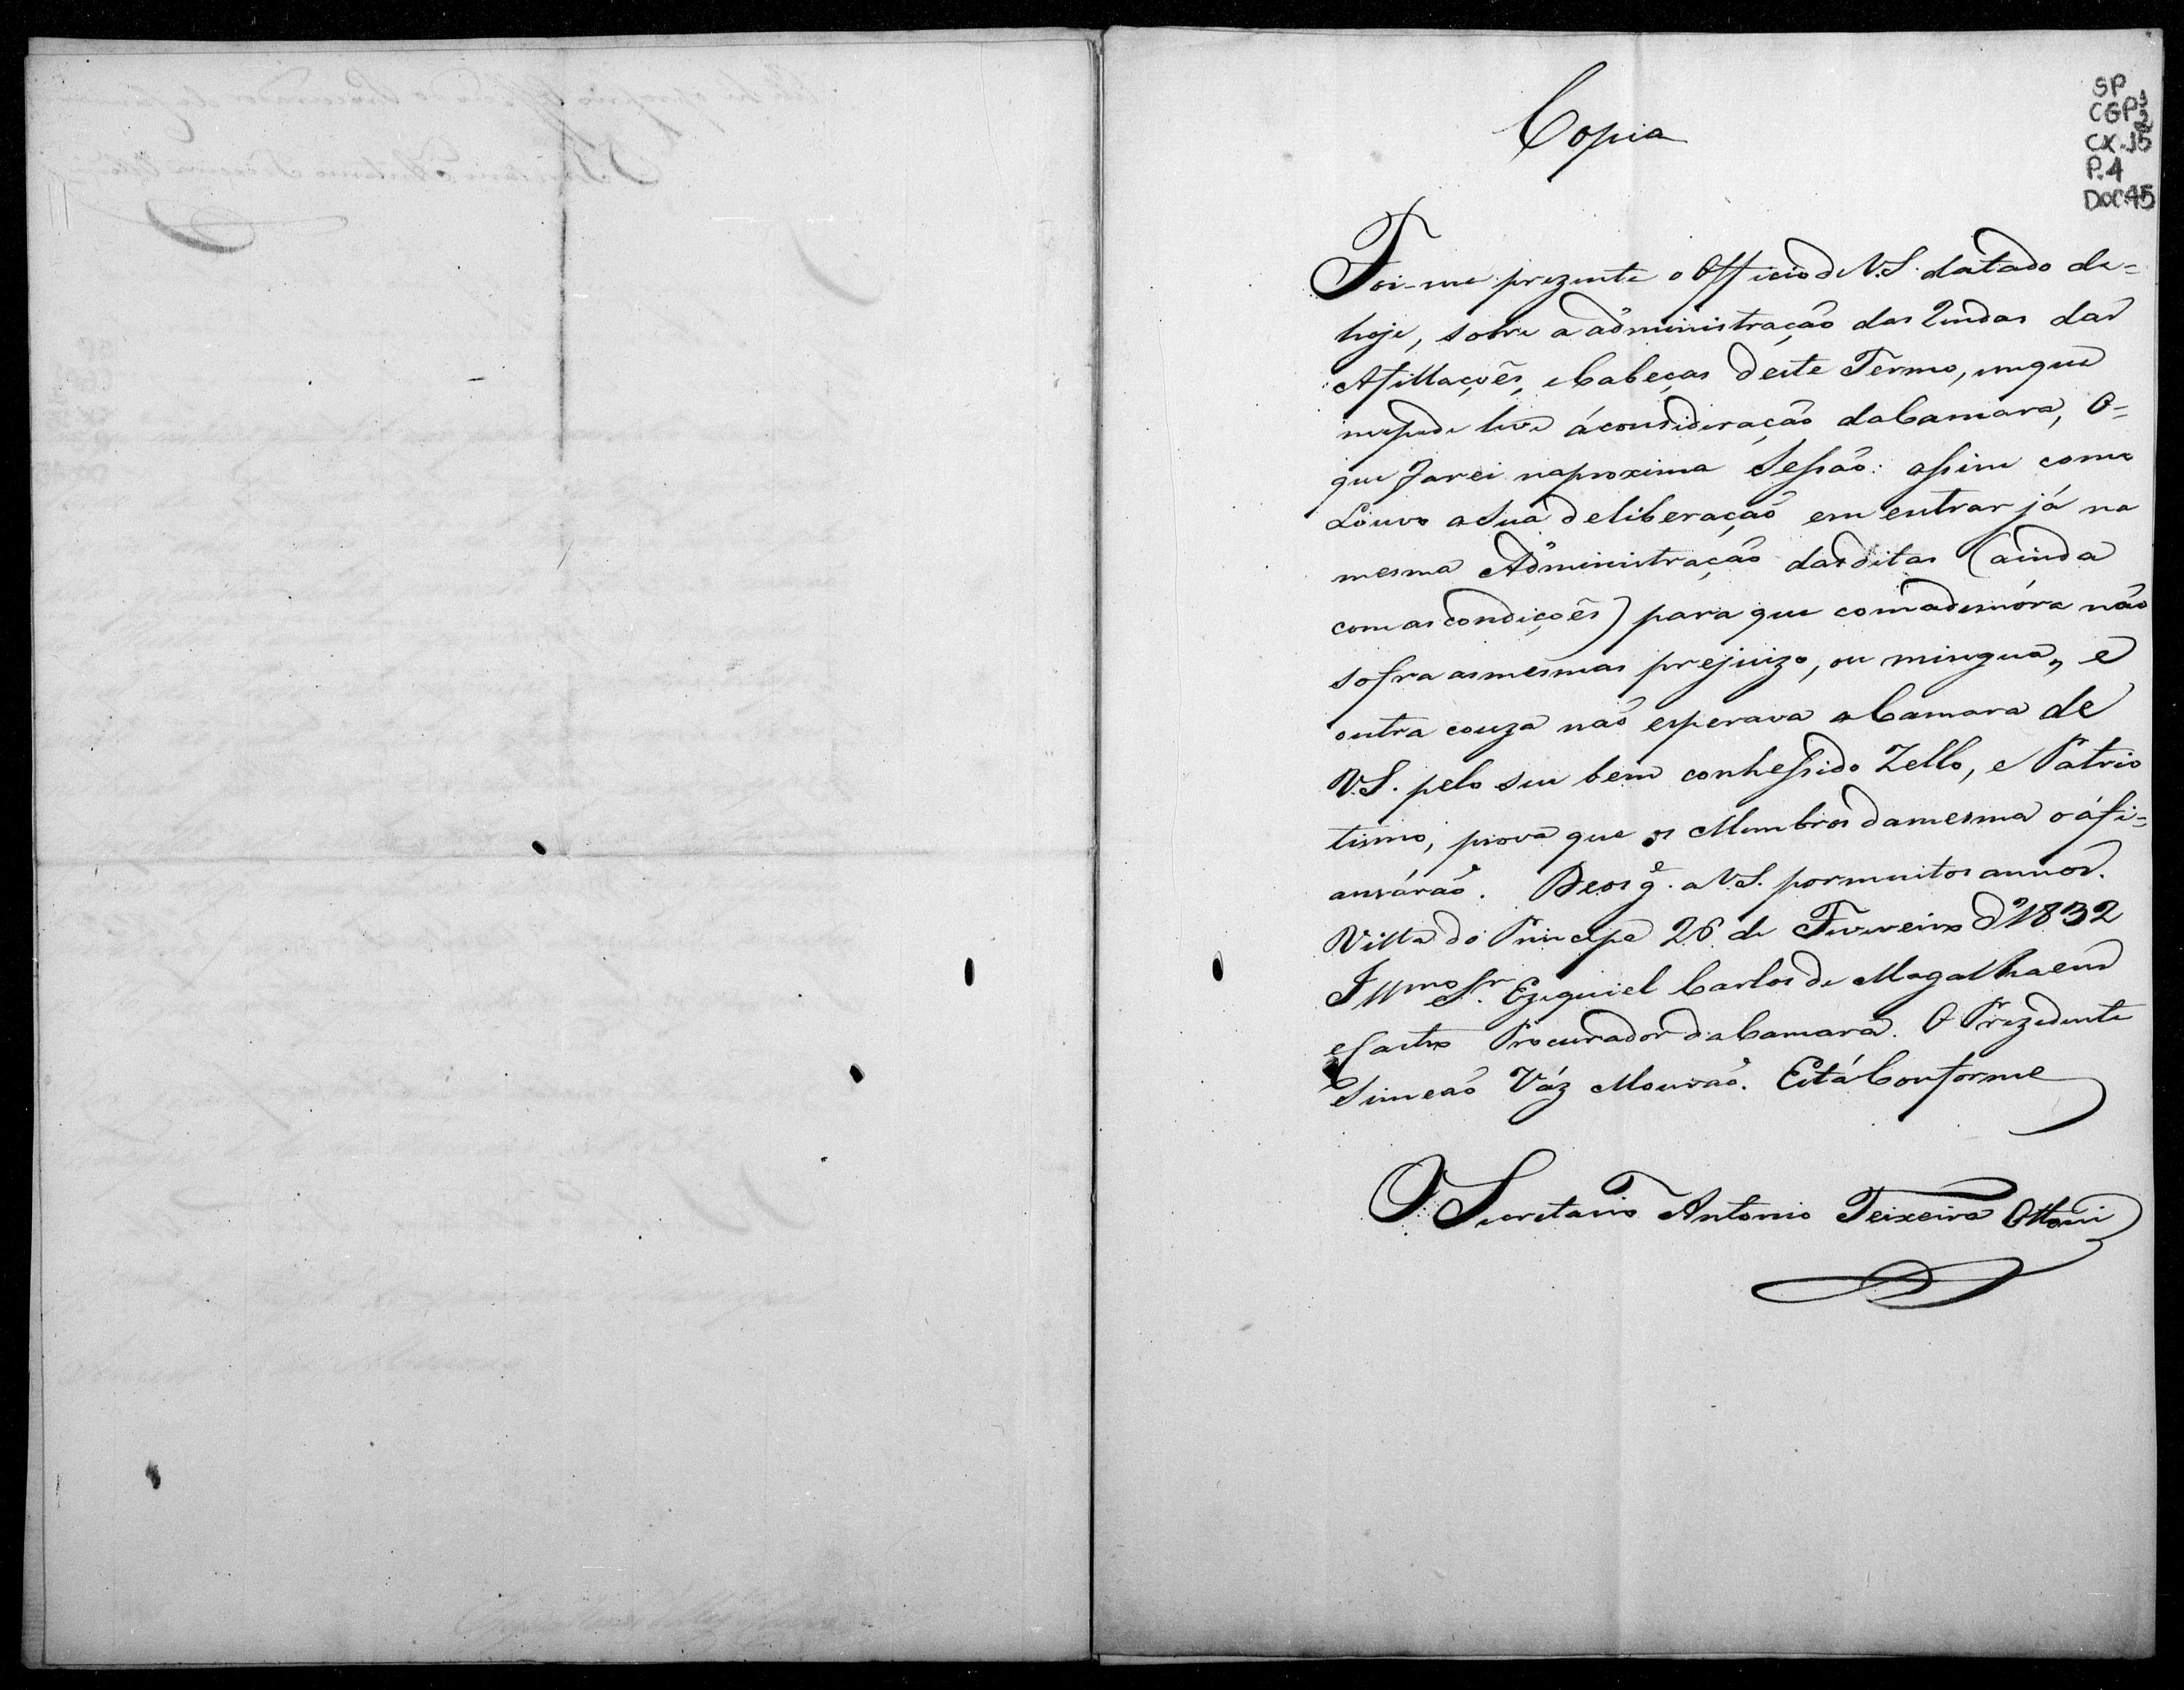 Copia
SP
CGP 1
2
CX. 15
P. 4
DOC 45
Foi-me prezente o Officio de V.S. datado de=
hoje, sobre a administração das Rendas das
Afillaçoẽs, e Cabeças deste Termo, em que
me pede leve á consideração da Camara, O=
que farei na proxima Sessão: assim como
Louvo a sua deliberação em entrar já na
mesma Administração das ditas (ainda
com as condiçoẽs) para que com a demóra não
sofra as mesmas prejuizo, ou mingua, e
outra couza não esperava a Camara de
V.S. pelo seu bem conhessido Zello, e Patrio
tismo, prova que os Membros da mesma o áfi=
ansárão. Deos g.e a V.S. por muitos annos.
Villa do Principe 26 de Fevereiro d'1832
Illmo Sr. Ezequiel Carlos de Magalhaens
e Castro Procurador da Camara. O Prezidente
Simeão Váz Mourão. Está Conforme
O Secretario Antonio Teixeira Ottoni